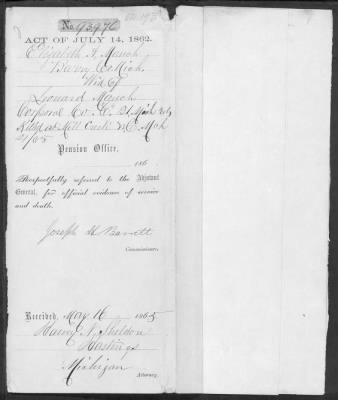 No. 93976
ACT OF JULY 14, 1862.
Elizabeth A. Mauch,
Barry Co Mich.
Wid of
Leonard Mauch
Corporal Co "C" 21 Mich Vols
Killed at Mill Creek N.C. Mch
21/65
Pension Office,
186
Respectfully referred to the Adjutant
General, for official evidence of service
and death.
Joseph H Barrett
Commissioner.
Received, May 16 1865
Harvey N. Sheldon
Hastings
Michigan
Attorney.